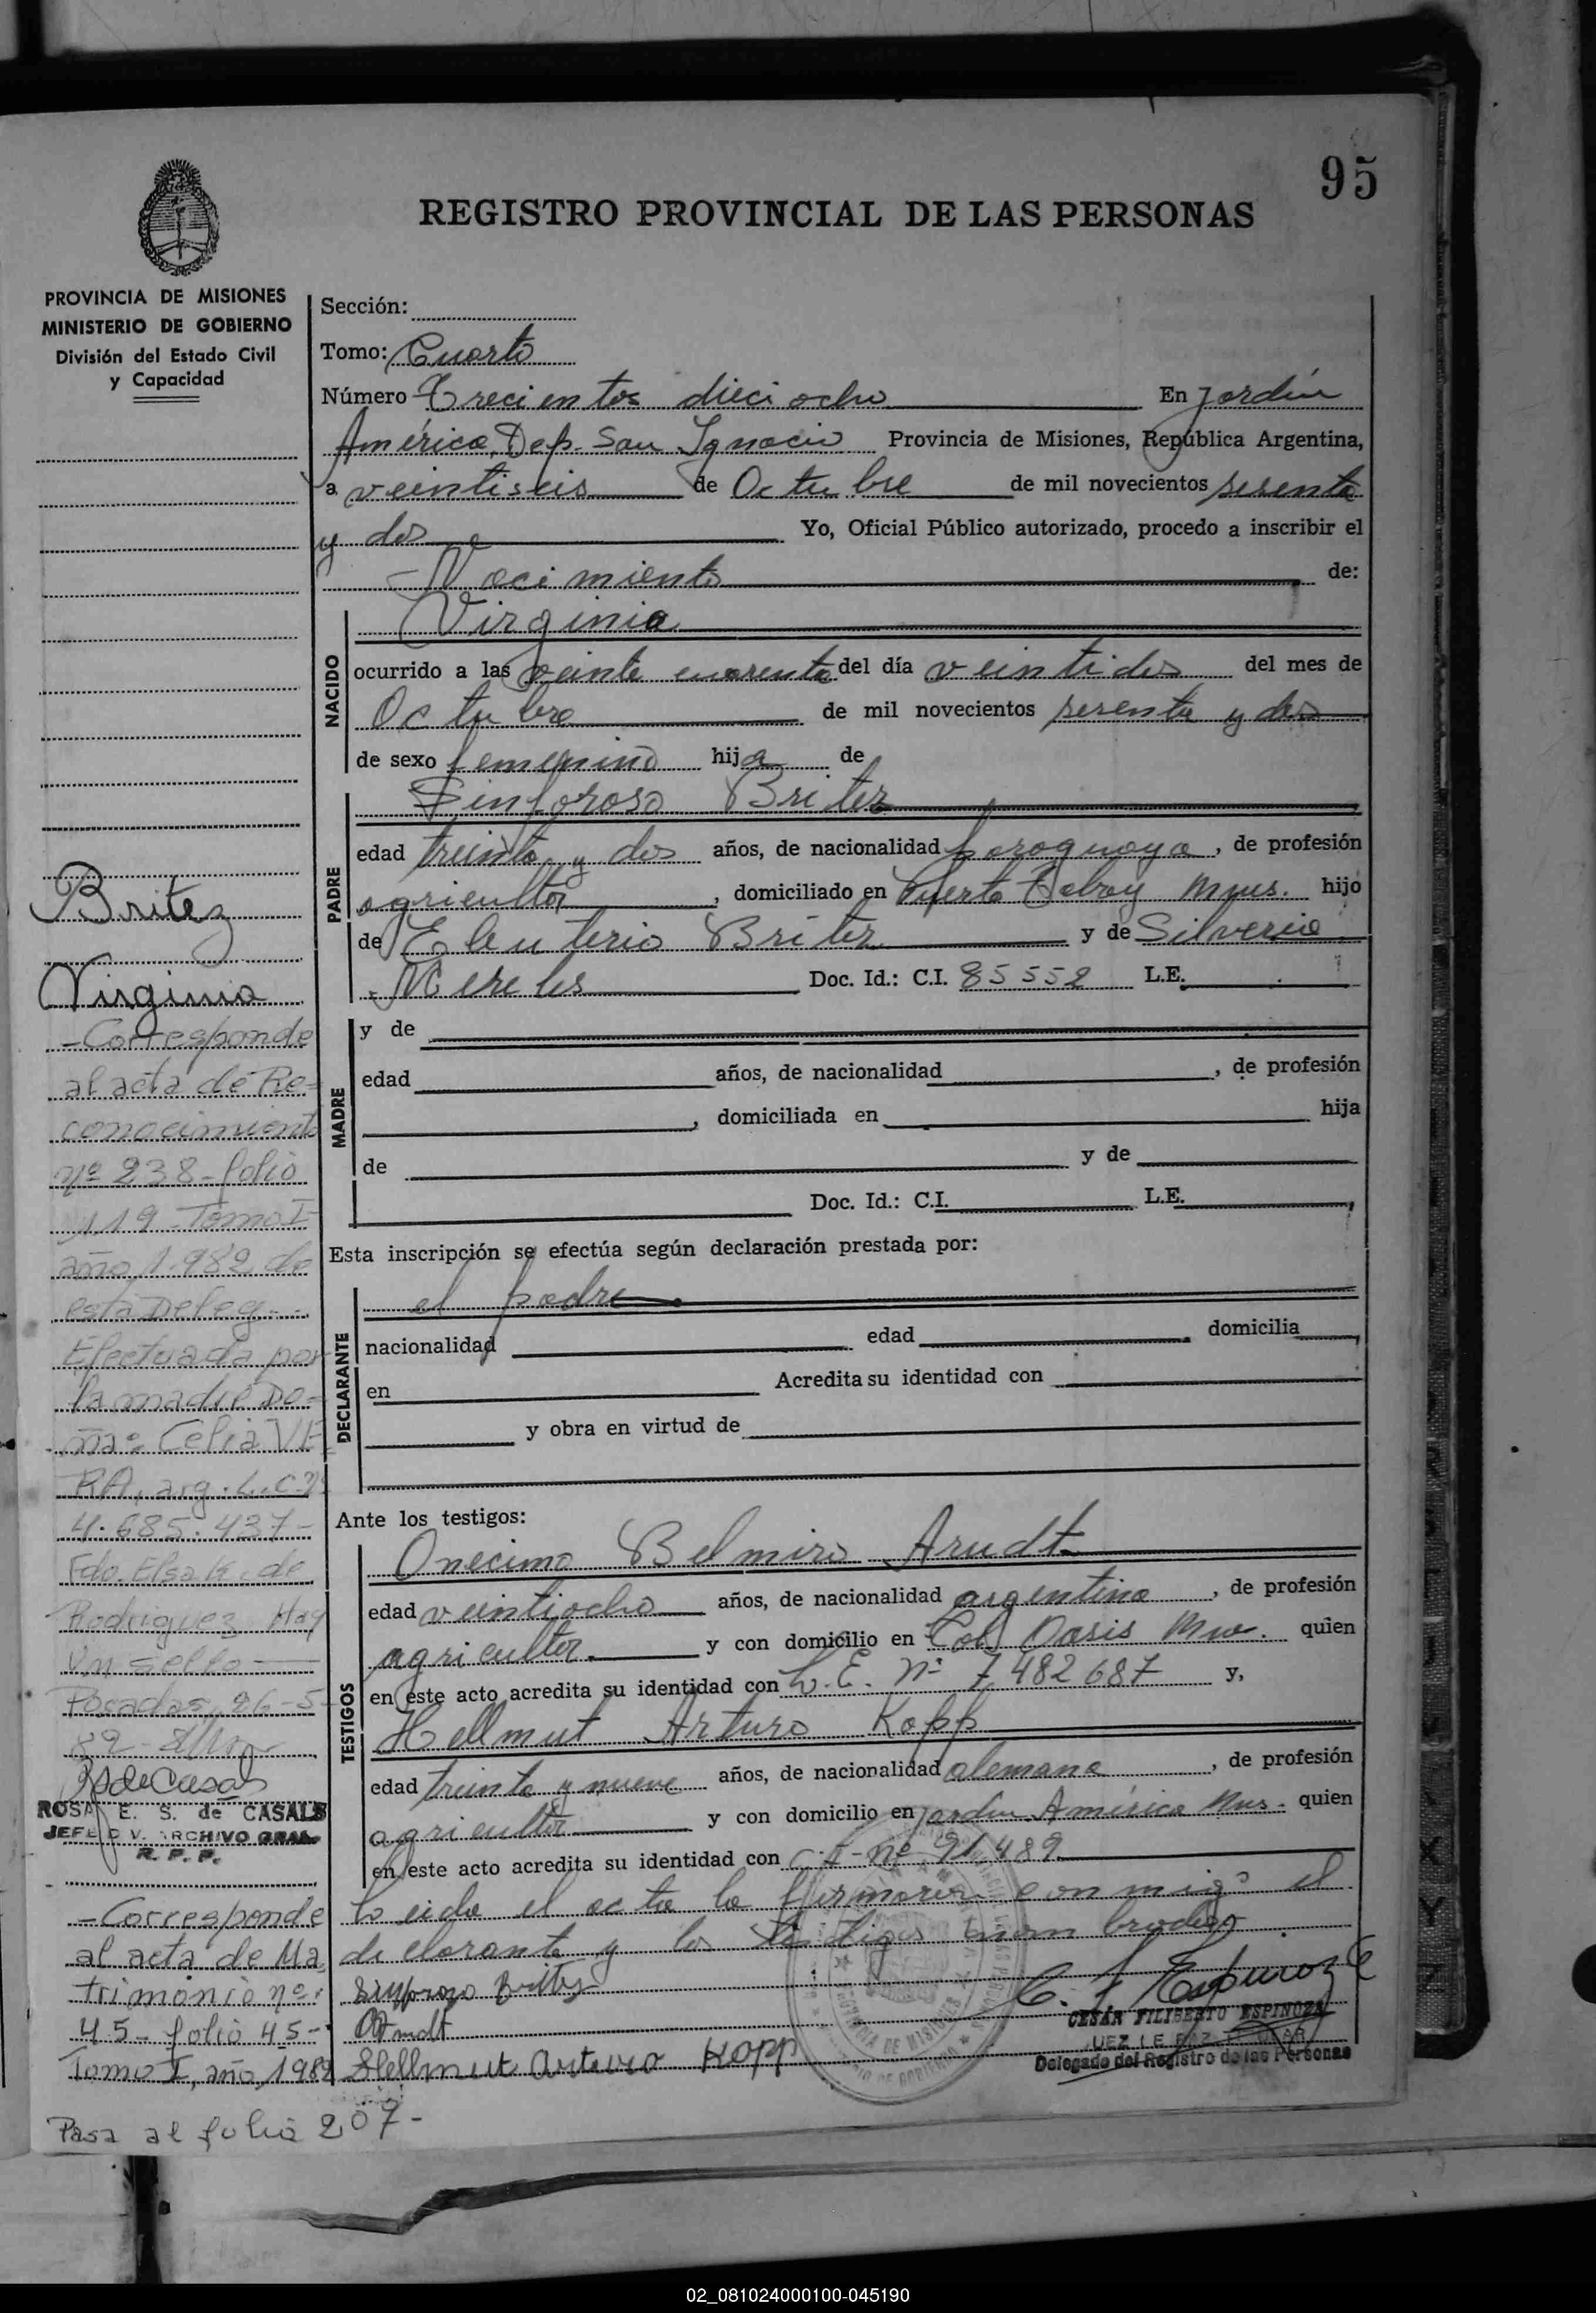 95
REGISTRO PROVINCIAL DE LAS PERSONAS
PROVINCIA DE MISIONES
MINISTERIO DE GOBIERNO
División del Estado Civil
y Capacidad
Sección:
Tomo: Cuarto
Número Trecientos dieciocho En Jardín
América, Dep. San Ignacio Provincia de Misiones, República Argentina,
a veintiseis de Octubre de mil novecientos sesenta
y dos Yo, Oficial Público autorizado, procedo a inscribir el
Nacimiento de:
NACIDO
Virginia
ocurrido a las veinte cuarenta del día veintidos del mes de
Octubre de mil novecientos sesenta y dos
de sexo femenino hija de
PADRE
Sinforoso Britez
edad treinta y dos años, de nacionalidad paraguaya, de profesión
agricultor, domiciliado en Puerto Mnes. hijo
de Eleuterio Britez y de Silveria
Mereles Doc. Id.: C.I. 85552 L.E.
MADRE
y de
edad años, de nacionalidad , de profesión
, domiciliada en hija
de y de
Doc. Id.: C.I. L.E.
Esta inscripción se efectúa según declaración prestada por:
DECLARANTE
el padre
nacionalidad edad domicilia
en Acredita su identidad con
y obra en virtud de
Ante los testigos:
TESTIGOS
Onecimo Belmiro Arndt
edad veintiocho años, de nacionalidad argentina, de profesión
agricultor y con domicilio en Col. Oasis Mnes. quien
en este acto acredita su identidad con L.E. Nº 7482687 y,
Hellmut Arturo Kopp
edad treinta y nueve años, de nacionalidad alemana, de profesión
agricultor y con domicilio en Jardín América Mns. quien
en este acto acredita su identidad con C.I. nº 91.489
Leida el acta la firmaron conmigo el
declarante y los testigos nombrados
Sinforozo Britez
OArndt
Hellmut Arturo Kopp
C. F. Espinoza
CESÁR FILIBERTO ESPINOZA
JUEZ DE PAZ
Delegado del Registro de las Personas
Britez
Virginia
-Corresponde
al acta de Re=
conocimiento
nº 238-folio
119-Tomo I
año 1.982 de
esta Deleg-.
Efectuada por
la madre Do=
ña: Celia VE
RA, arg. L.C.Nº
4.685.437-
Fdo. Elsa K. de
Rodriguez Hay
un sello-
Posadas, 26-5-
82-
RSdeCasals
ROSA E. S. de CASALS
JEFE DIV. ARCHIVO GRAL.
R. P. P.
-Corresponde
al acta de Ma
trimonio nº:
45-folio 45-
Tomo I, año 1982
Pasa al folio 207-
02_081024000100-045190